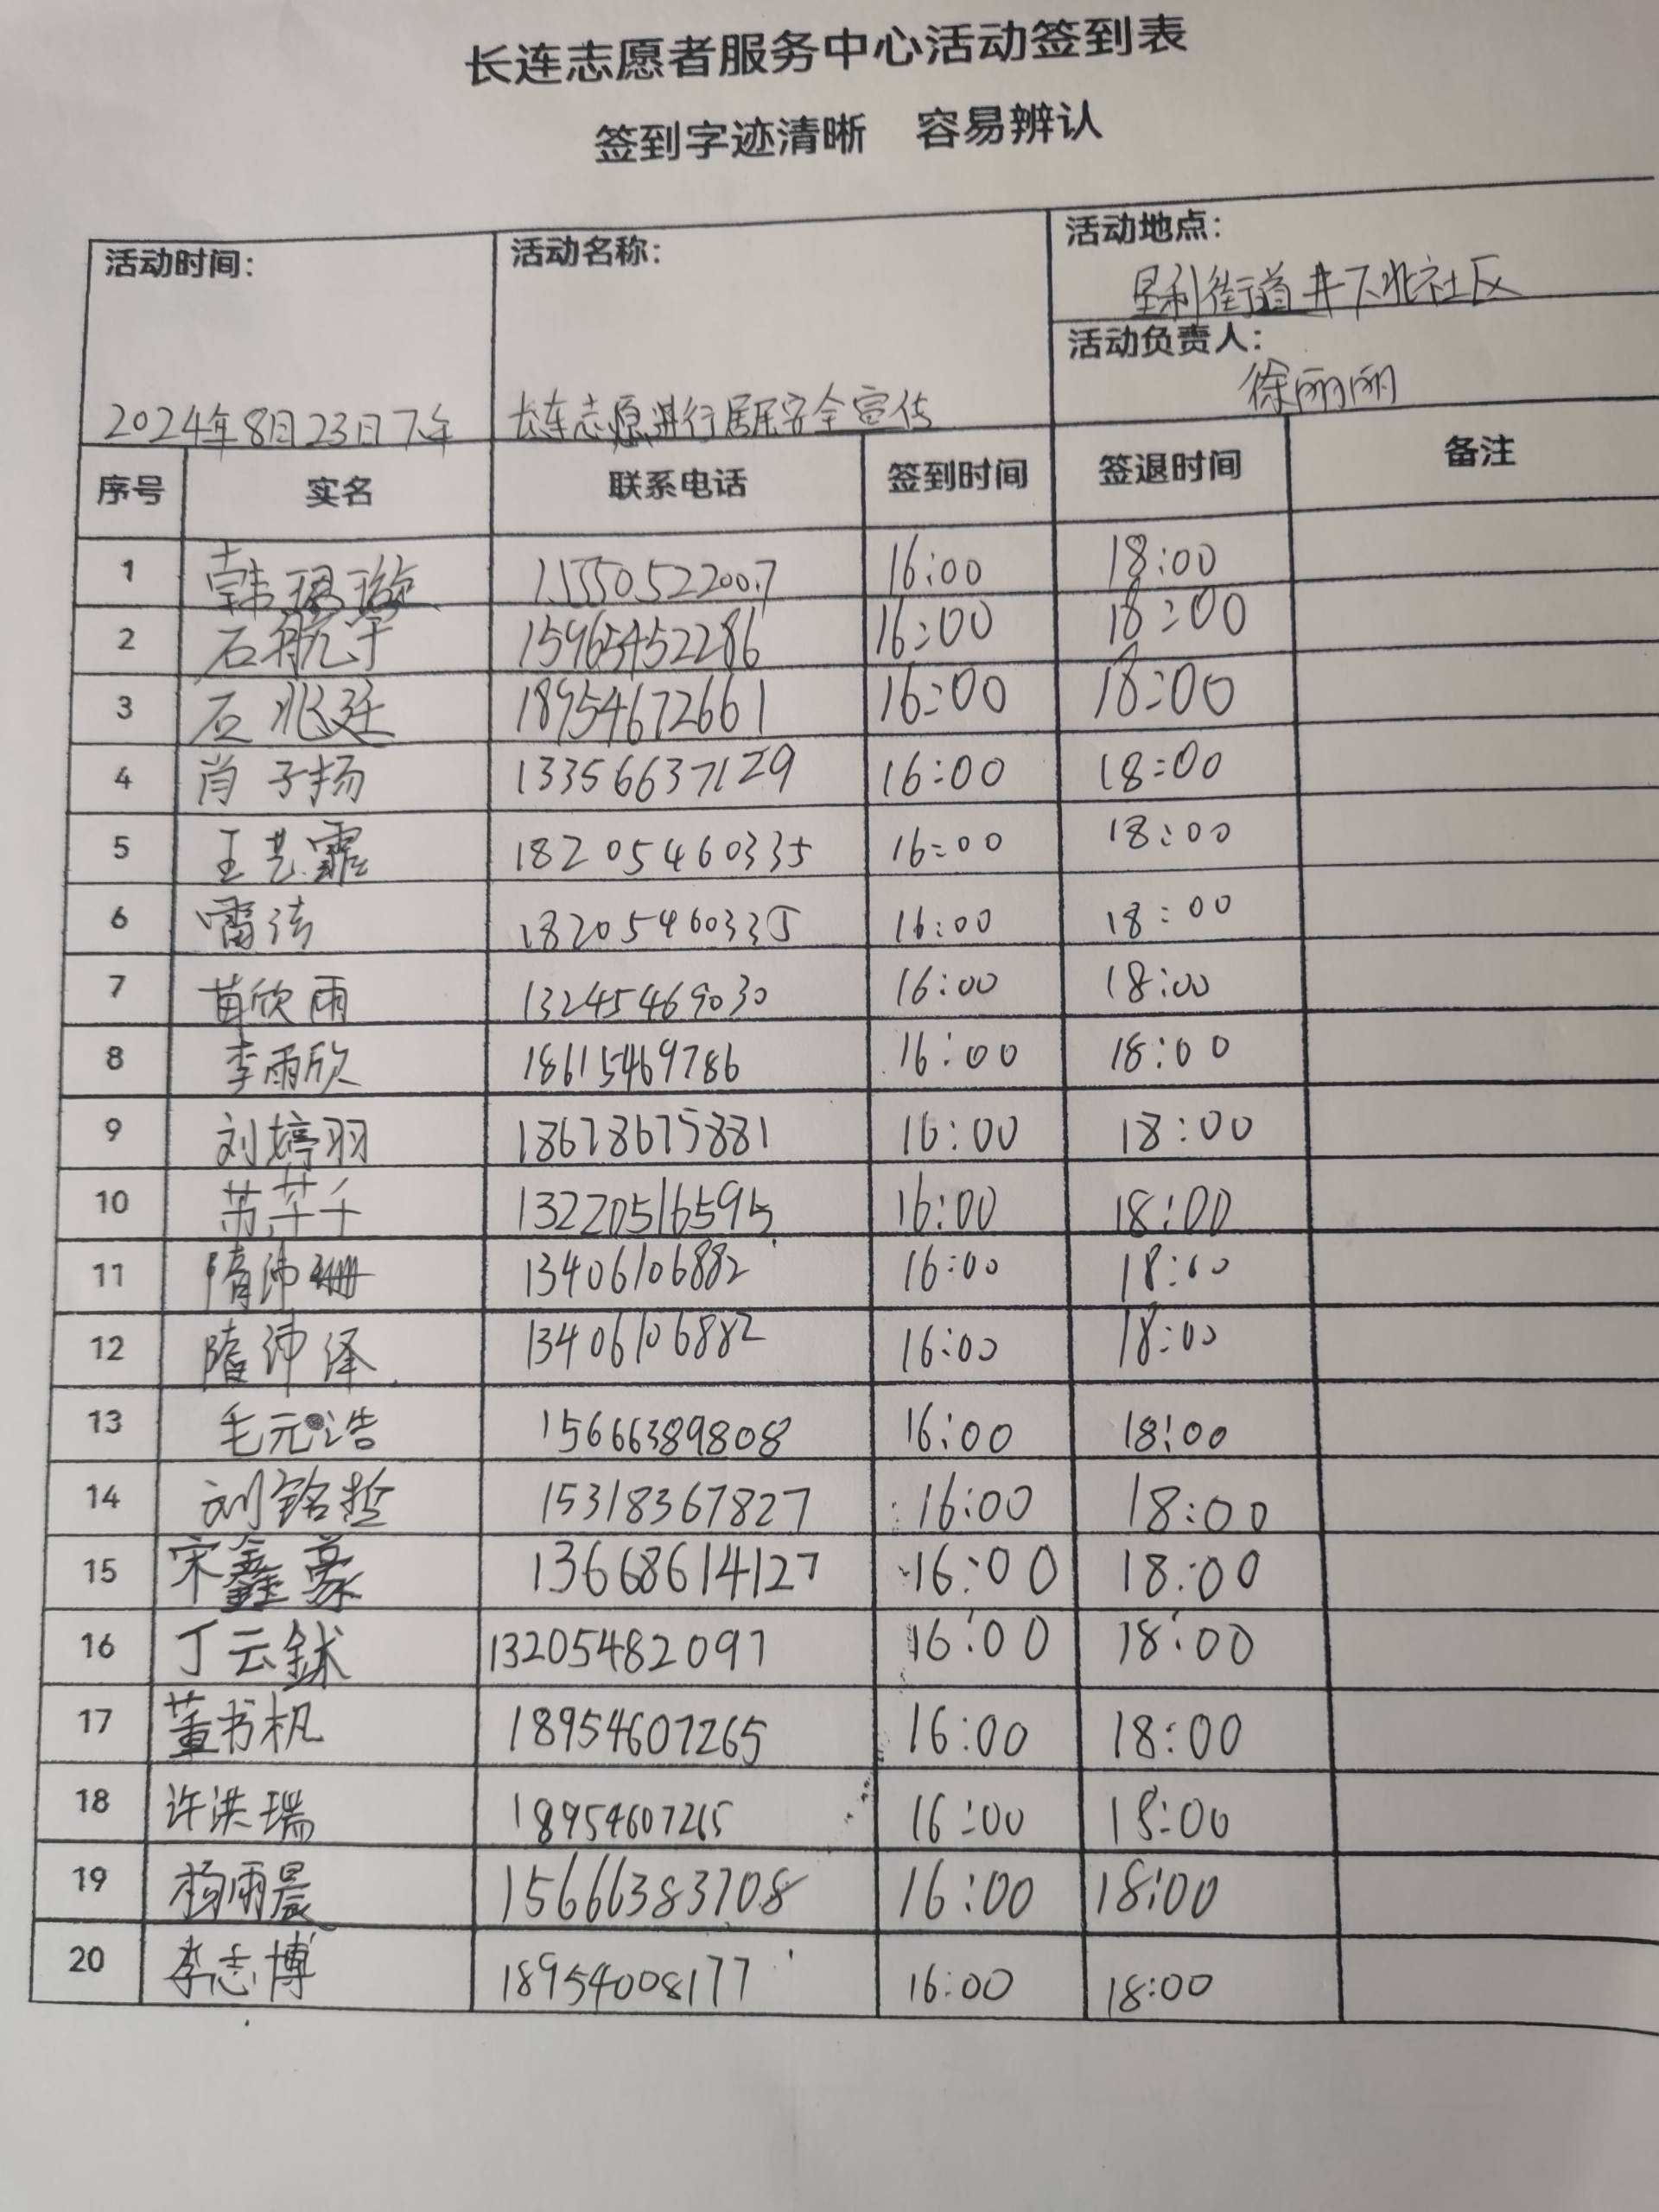 长连志愿者服务中心活动签到表
签到字迹清晰 容易辨认
活动时间: 活动名称: 活动地点:
垦利街道井下北社区
活动负责人:
徐丽丽
2024年8月23日下午 长连志愿进行居民安全宣传
序号 实名 联系电话 签到时间 签退时间 备注
1 韩珺璇 15550522007 16:00 18:00
2 石航宇 15965452286 16:00 18:00
3 石兆廷 18954672661 16:00 18:00
4 肖子扬 13356637129 16:00 18:00
5 王艺霏 18205460335 16:00 18:00
6 18205460335 16:00 18:00
7 苗欣雨 13245469030 16:00 18:00
8 李雨欣 18615469786 16:00 18:00
9 刘婷羽 18678675881 16:00 18:00
10 苏芊千 13220516595 16:00 18:00
11 隋沛珊 13406106882 16:00 18:00
12 隋沛泽 13406106882 16:00 18:00
13 毛元浩 15666389808 16:00 18:00
14 刘铭哲 15318367827 16:00 18:00
15 宋鑫豪 13668614127 16:00 18:00
16 丁云 13205482097 16:00 18:00
17 董书机 18954607265 16:00 18:00
18 许洪瑞 18954607265 16:00 18:00
19 杨雨晨 15666383708 16:00 18:00
20 李志博 18954008177 16:00 18:00